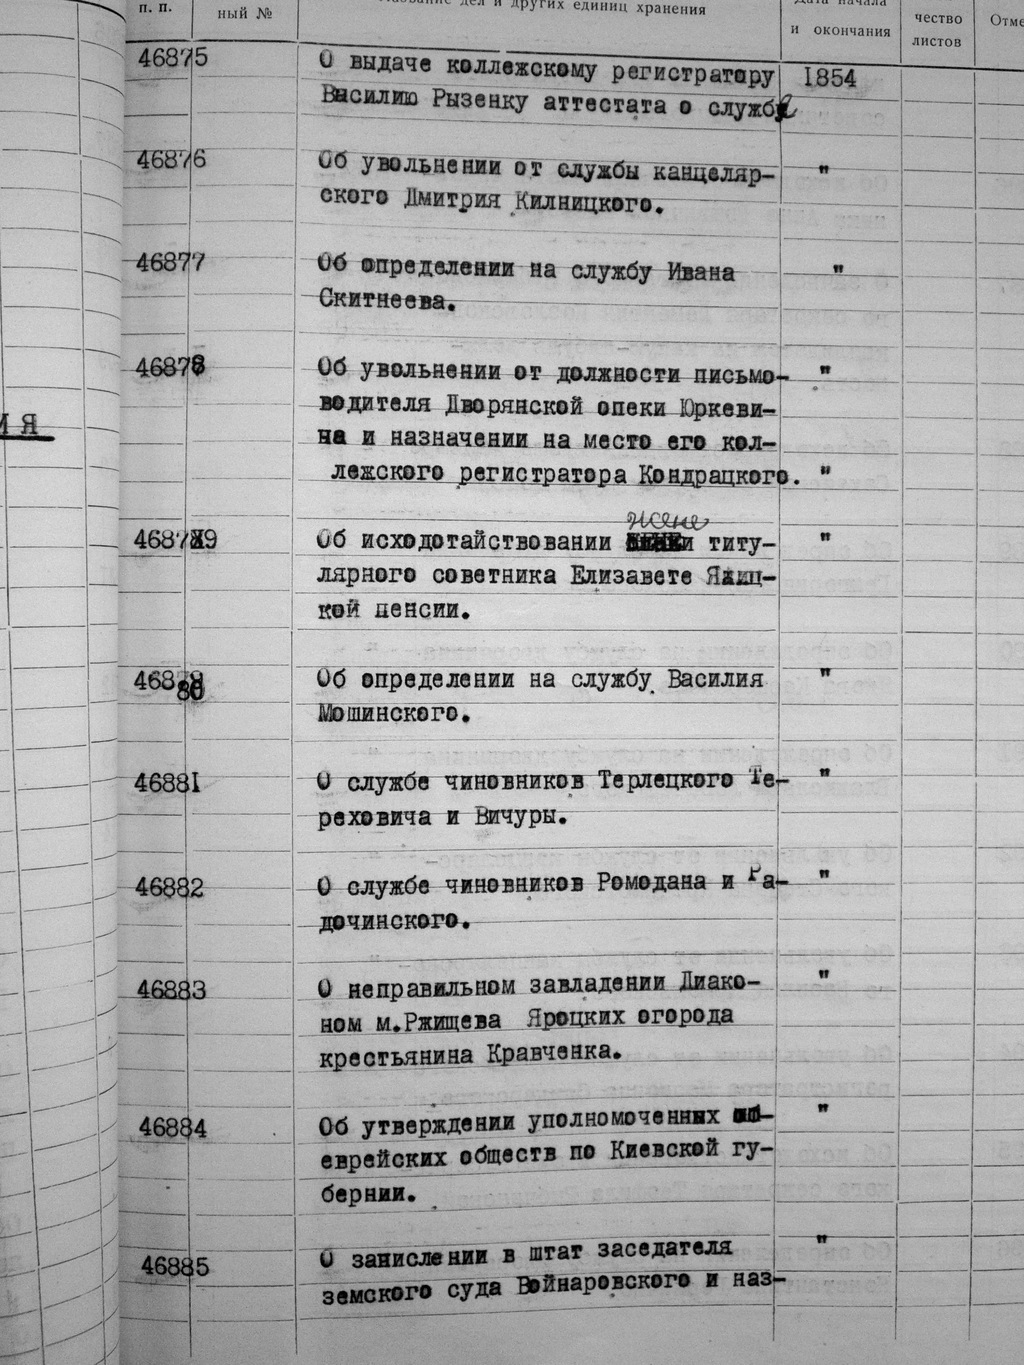 п. п.
ный №
и других единиц хранения
Дата начала
и окончания
чество
листов
46875 О выдаче коллежскому регистратору 1854
Василию Рызенку аттестата о службе
46876 Об увольнении от службы канцеляр- "
ского Дмитрия Килницкого.
46877 Об определении на службу Ивана "
Скитнеева.
46878 Об увольнении от должности письмо- "
водителя Дворянской опеки Юркеви-
на и назначении на место его кол-
лежского регистратора Кондрацкого. "
жене
46879 Об исходотайствовании титу- "
лярного советника Елизавете
кой пенсии.
46880 Об определении на службу Василия "
Мошинского.
46881 О службе чиновников Терлецкого Те- "
реховича и Вичуры.
46882 О службе чиновников Ромодана и Ра- "
дочинского.
46883 О неправильном завладении Диако- "
ном м.Ржищева Яроцких огорода
крестьянина Кравченка.
46884 Об утверждении уполномоченных "
еврейских обществ по Киевской гу-
бернии.
46885 О занислении в штат заседателя "
земского суда Войнаровского и наз-
ИЯ